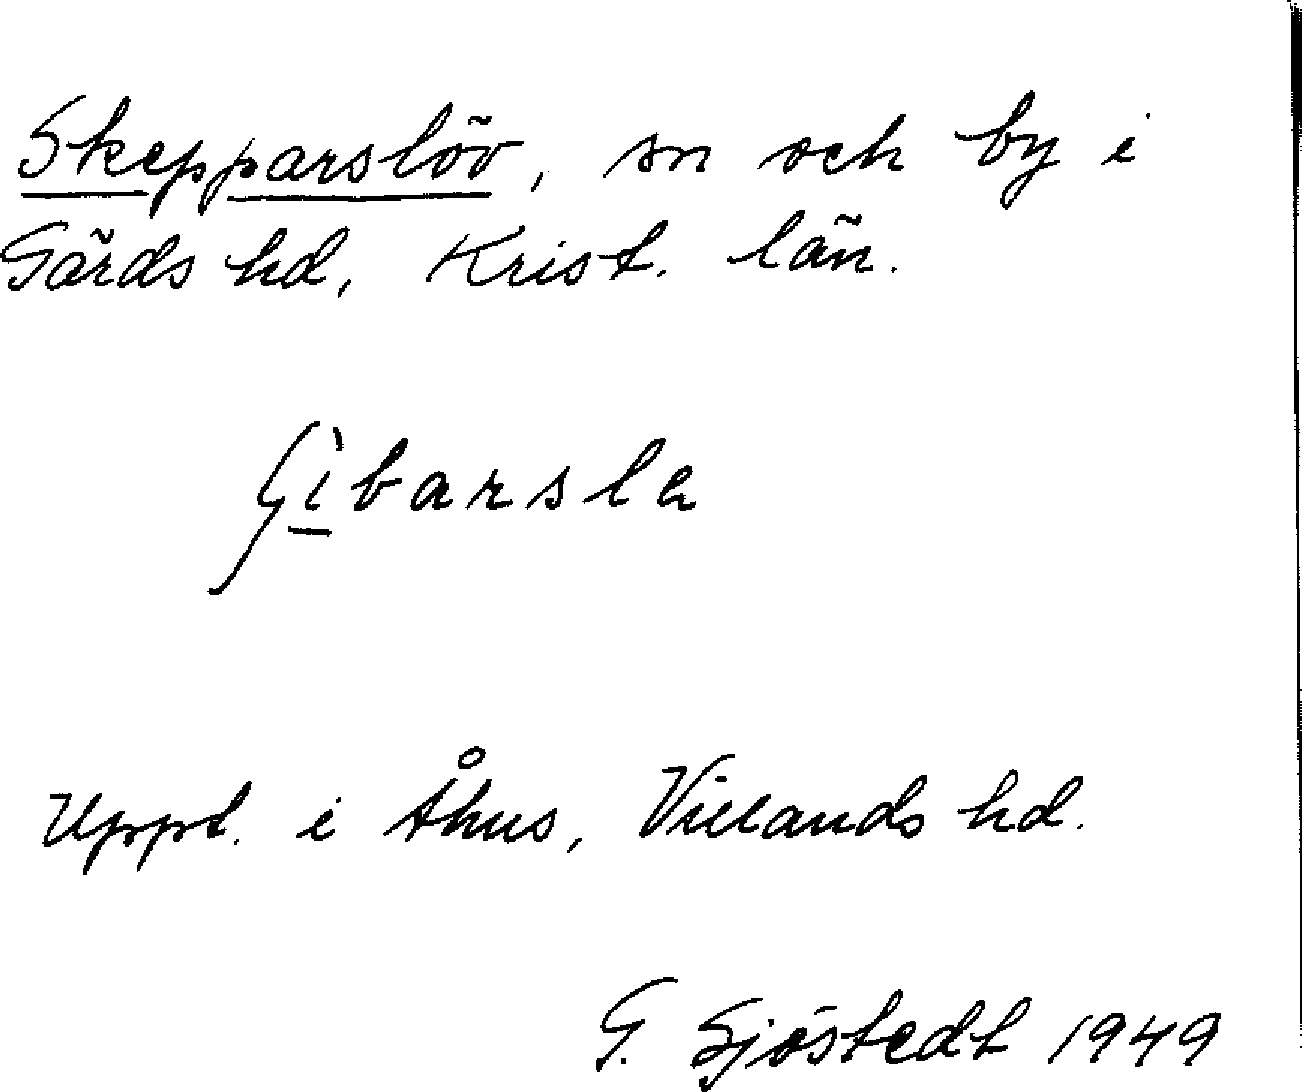 Skepparslöv, sn och by i
Gärds hd, Krist. län.
ʃì̠barslɐ
Uppt. i Åhus, Villands hd.
G. Sjöstedt 1949